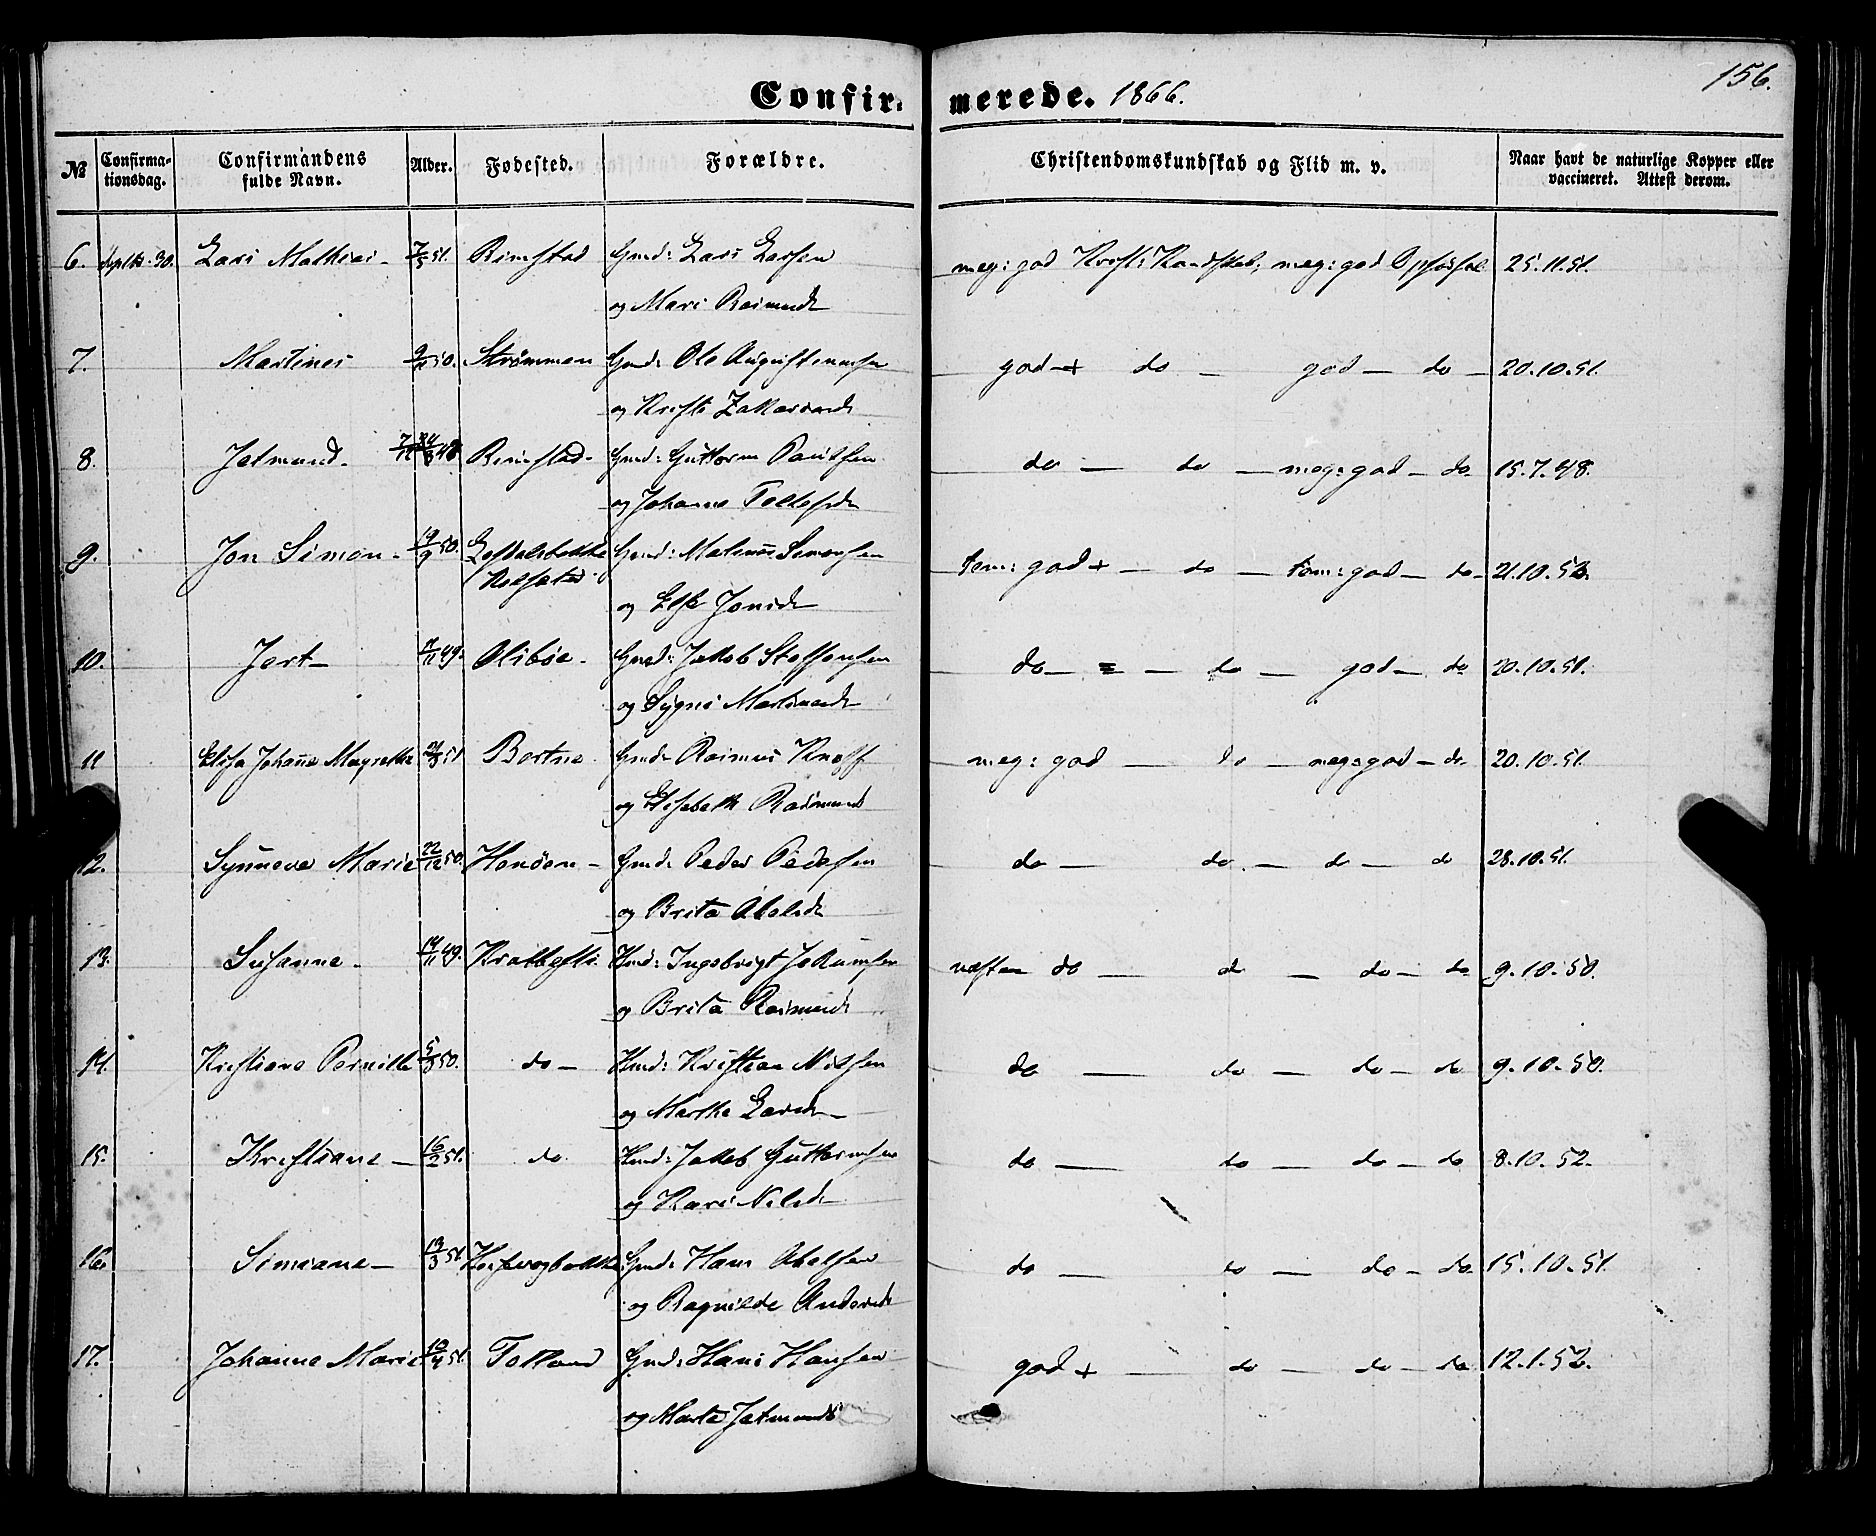 Confirmerede. 1866. 156.
№ Confirmationsdag. Confirmandens fulde Navn. Alder. Fødested. Forældre. Christendomskundskab og Flid m. v. Naar havt de naturlige Kopper eller vaccineret. Attest derom.
6. Septbr. 30. Lars Mathias - 7/5 51. Rimstad Gmd: Lars Larsen meg: god Krist: Kundskab; meg: god Opførsel 25.11.51.
og Mari Rasmusd
7. Martines 50. Strømmen Gmd: Ole Augustinussen god + do - god - do - 20.10.51.
og Kristi Zakariasd
8. Jetmund - 48 Rimstad - Gmd: Guttorm Paulsen do - do - meg: god - do 15.7.48.
og Johanne Tollefsd
9. Jon Simon - 19/9 50. Gmd: Matias Simonsen tem: god + - do - tem: god - do - 21.10.52.
og Else Jonsd
10. Jert - 7/11 49. Olsbøe - Gmd: Jakob Steffensen do - = - do - god - do 20.10.51.
og Sygni Martinusd
11 Elisa Johanne Magrethe 51 Bortne Gmd: Rasmus Knoff meg: god - do - meg: god - do 20.10.51.
og Elisabeth Rasmusd
12. Synneve Marie 22/12 50. Hanøen - Gmd: Peder Pedersen do - do - do - do 28.10.51.
og Brita Abelsd
13. Susanne - 14/11 49. Hmd: Ingebrigt Joakimsen næsten do - do - do - do 9.10.50.
og Brita Rasmusd
14. Kristiane Pernille 5/3 50. do - Hmd: Kristian Nilsen do - do - do - do 9.10.50.
og Marthe Larsd -
15. Kristiane - 16/2 51. do Hmd: Jakob Guttormsen do - do - do - do 8.10.52.
og Kari Nilsd
16. Simiane - 13/3 51. Gmd: Hans Abelsen do - do - do - do 15.10.51.
og Ragnilde Andersd
17. Johanne Marie 10/4 51. Totland Gmd: Hans Hansen god + - do - do - do 12.1.52.
og Marta Jetmundsd